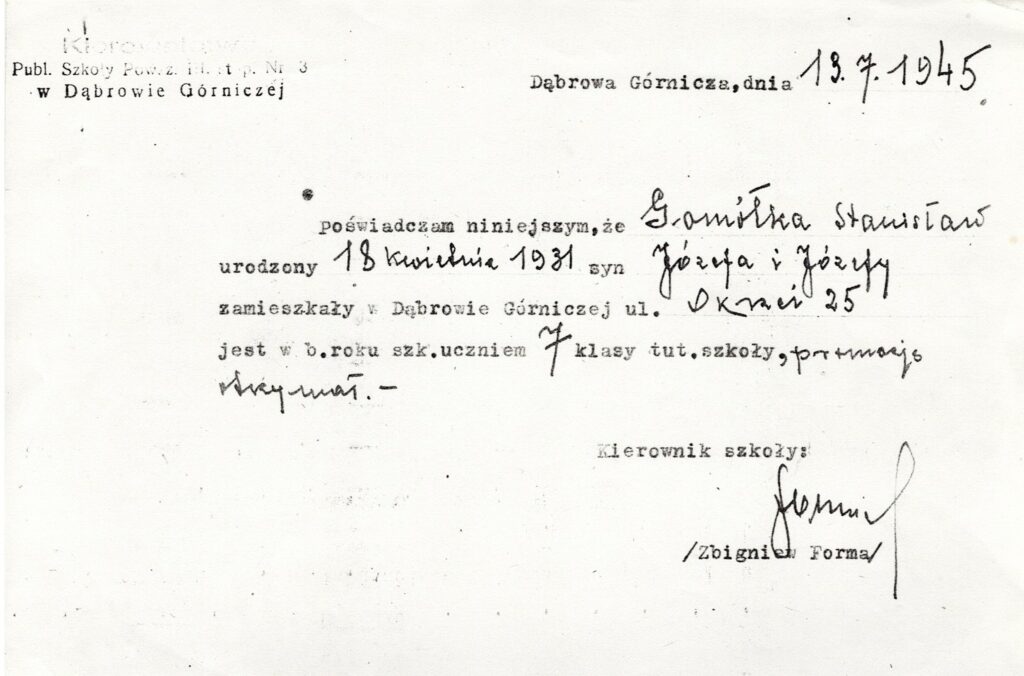 Kierownictwo
Publ. Szkoły Powsz. III. st. p. Nr 3
w Dąbrowie Górniczej
Dąbrowa Górnicza, dnia 13.7.1945
Poświadczam niniejszym, że Gomółka Stanisław
urodzony 18 kwietnia 1931 syn Józefa i Józefy
zamieszkały w Dąbrowie Górniczej ul. Okrzei 25
jest w b.roku szk.uczniem 7 klasy tut.szkoły, promocję
otrzymał.-
Kierownik szkoły:
/Zbigniew Forma/